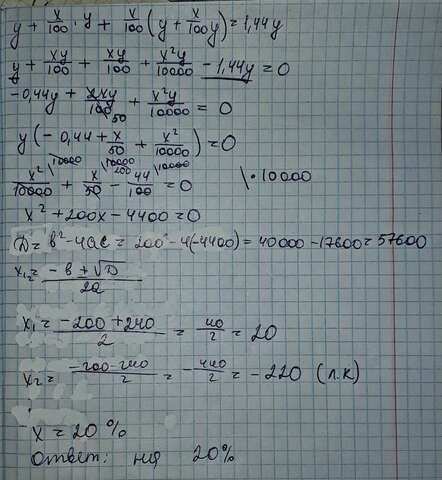 y + x/100 · y + x/100 (y + x/100 y) = 1,44y
y + xy/100 + xy/100 + x²y/10000 - 1,44y = 0
-0,44y + 2xy/100 50 + x²y/10000 = 0
y(-0,44 + x/50 + x²/10000) = 0
x²/10000 \10000 + x/50 \10000 200 - 44/100 \10000 = 0 \·10000
x² + 200x - 4400 = 0
D = b² - 4ac = 200² - 4(-4400) = 40000 - 17600 = 57600
x₁,₂ = -b ± √D / 2a
x₁ = -200 + 240 / 2 = 40/2 = 20
x₂ = -200 - 240 / 2 = -440/2 = -220 (п.к)
x = 20 %
Ответ: на 20%